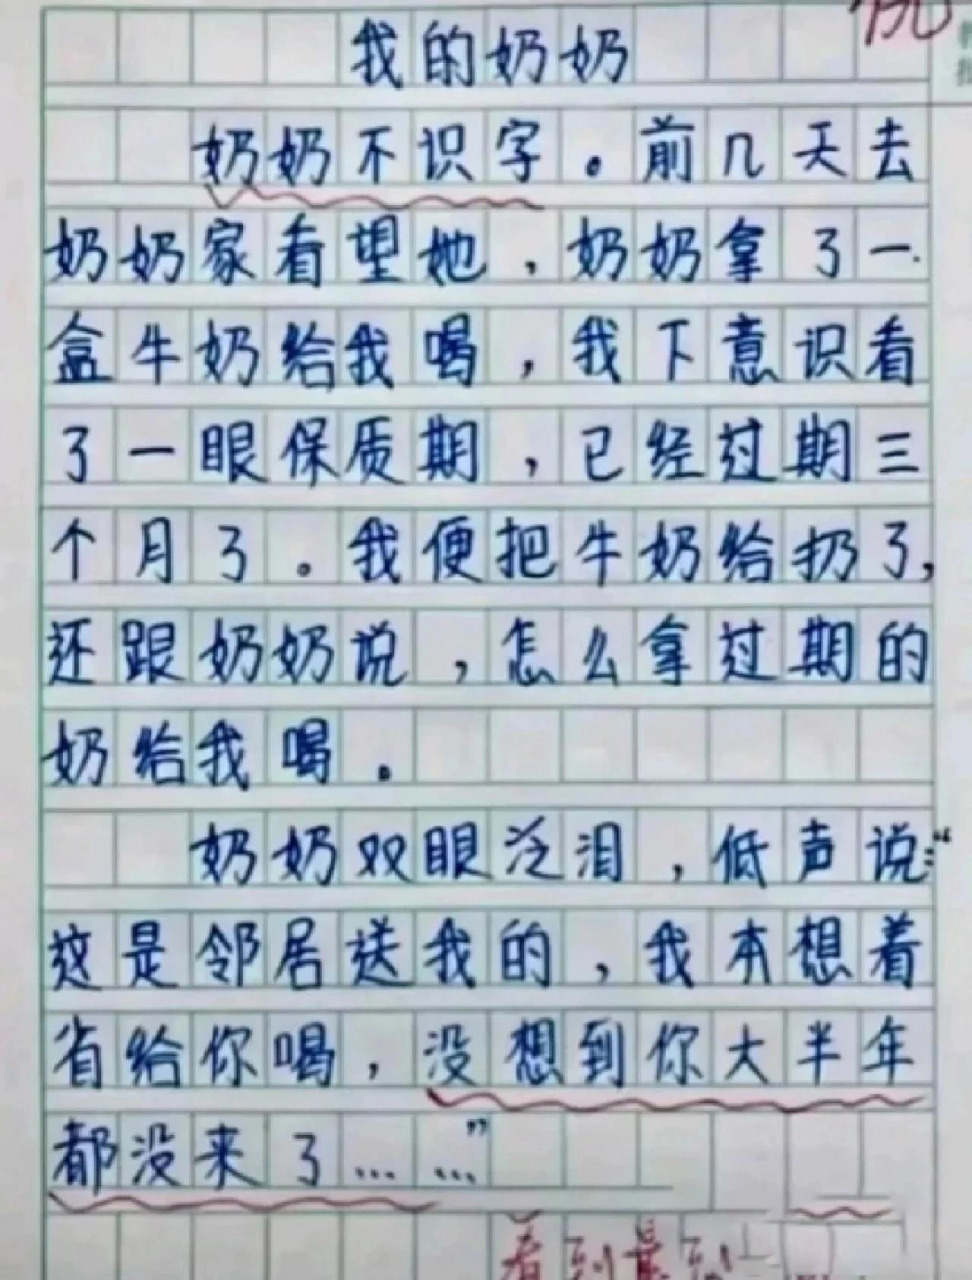 我的奶奶
奶奶不识字。前几天去
奶奶家看望她，奶奶拿了一
盒牛奶给我喝，我下意识看
了一眼保质期，已经过期三
个月了。我便把牛奶给扔了，
还跟奶奶说，怎么拿过期的
奶给我喝。
奶奶双眼泛泪，低声说：“
这是邻居送我的，我本想着
省给你喝，没想到你大半年
都没来了……”
看到最